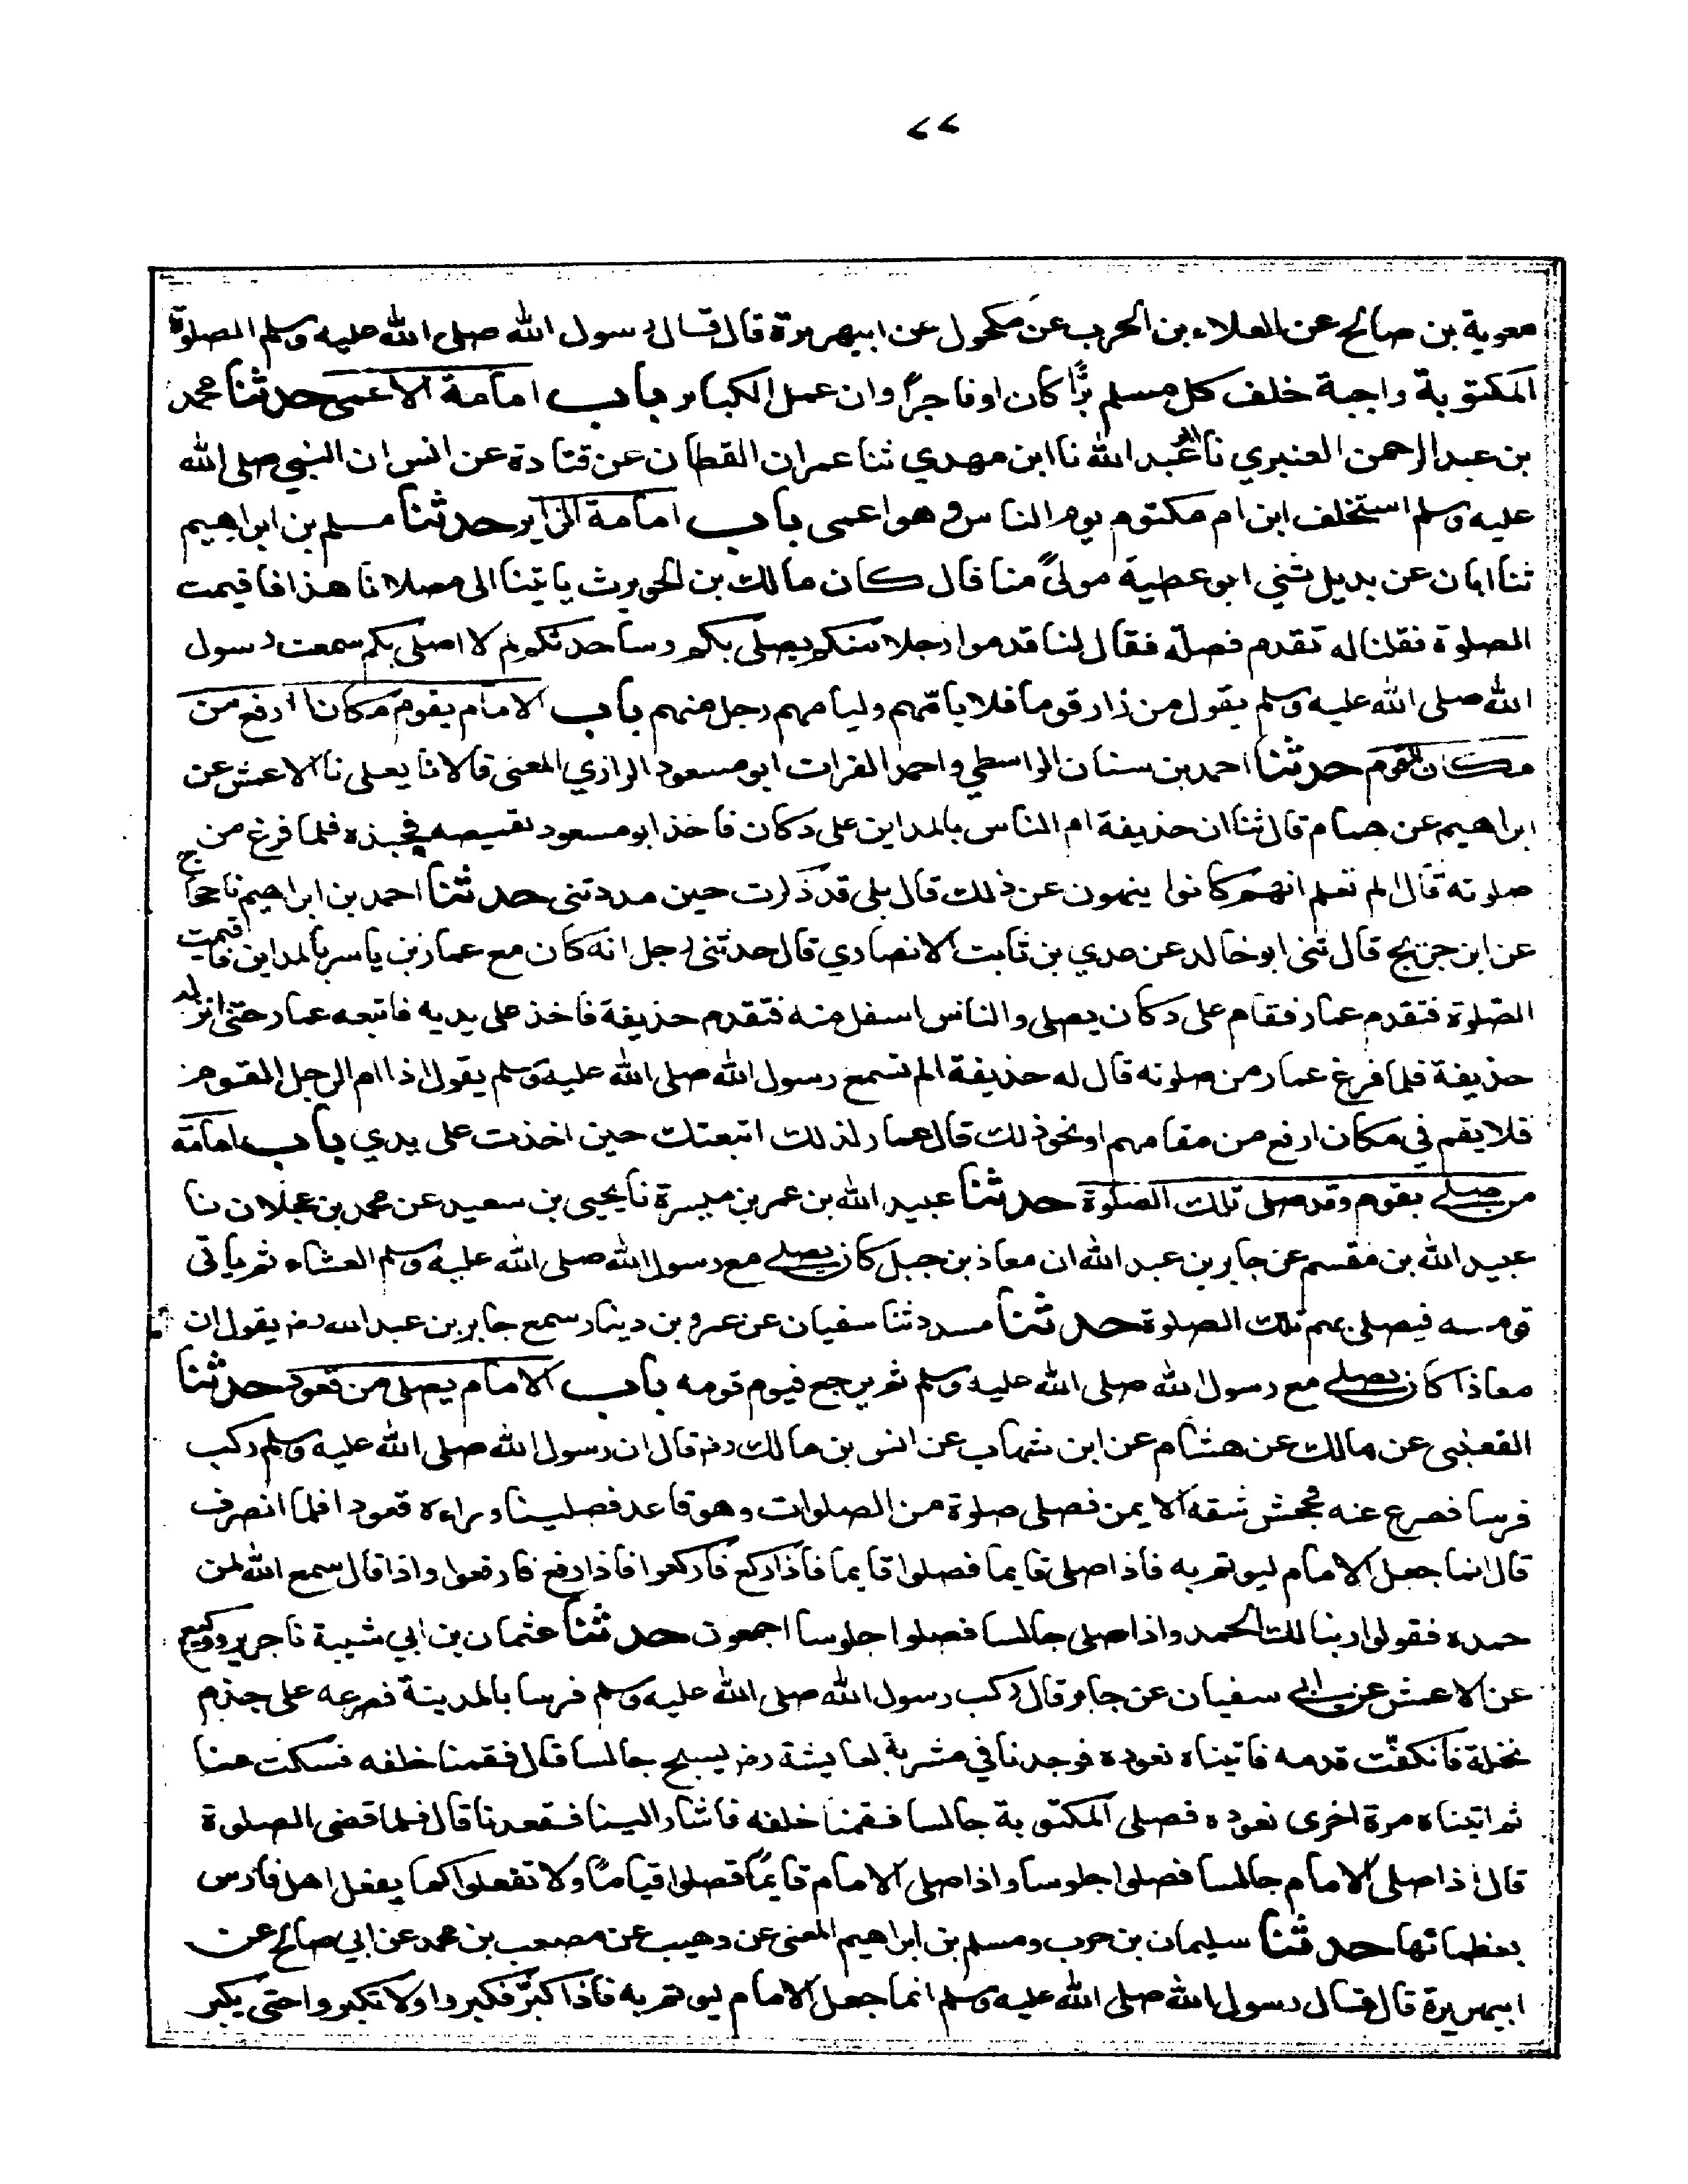 ٧٧
معوية بن صالح عن العلاء بن الحرب عن مكحول عن ابيهريرة قال قال رسول الله صلى الله عليه وسلم الصلوة
المكتوبة واجبة خلف كل مسلم برًّا كان او فاجرًا وان عمل الكباير باب امامة الاعمى حدثنا محمد
بن عبد الرحمن العنبري نا عبد الله نا ابن مهدي ثنا عمران القطان عن قتادة عن انس ان النبي صلى الله
عليه وسلم استخلف ابن ام مكتوم يوم الناس وهو اعمى باب امامة الزاير حدثنا مسلم بن ابراهيم
ثنا ابان عن بديل ثني ابو عطية مولىً منا قال كان مالك بن الحويرث ياتينا الى مصلانا هذا فاقيمت
الصلوة فقلنا له تقدم فصلّه فقال لنا قدموا رجلا منكم يصلى بكم وساحدثكم لم لا اصلى بكم سمعت رسول
الله صلى الله عليه وسلم يقول من زار قوما فلا يامّهم وليامهم رجل منهم باب الامام يقوم مكانا ارفع من
مكان القوم حدثنا احمد بن سنان الواسطي واحمد الفرات ابو مسعود الرازي المعنى قالا نا يعلى نا الاعمش عن
ابراهيم عن همام قال ثنا ان حذيفة ام الناس بالمداين على دكان فاخذ ابو مسعود بقميصه فجبذه فلما فرغ من
صلوته قال الم تعلم انهم كانوا ينهون عن ذلك قال بلى قد ذكرت حين مددتنى حدثنا احمد بن ابراهيم نا حجاج
عن ابن جريج قال ثنى ابو خالد عن عدي بن ثابت الانصاري قال حدثنى رجل انه كان مع عمار بن ياسر بالمداين فاقيمت
الصّلوة فتقدم عمار فقام على دكان يصلى والناس اسفل منه فتقدم حذيفة فاخذ على يديه فاتبعه عمار حتى انزله
حذيفة فلما فرغ عمار من صلوته قال له حذيفة الم تسمع رسول الله صلى الله عليه وسلم يقول اذا ام الرجل القوم
فلا يقم في مكان ارفع من مقامهم او نحو ذلك قال عمار لذلك اتبعتك حين اخذت على يدي باب امامة
من صلى بقوم وقد صلى تلك الصلوة حدثنا عبيد الله بن عمر بن ميسرة نا يحيى بن سعيد عن محمد بن عجلان نا
عبيد الله بن مقسم عن جابر بن عبد الله ان معاذ بن جبل كان يصلى مع رسول الله صلى الله عليه وسلم العشاء ثم ياتى
قومه فيصلى بهم تلك الصلوة حدثنا مسدد ثنا سفيان عن عمرو بن دينار سمع جابر بن عبد الله رض يقول ان
معاذا كان يصلى مع رسول الله صلى الله عليه وسلم ثم يرجع فيوم قومه باب الامام يصلى من قعود حدثنا
القعنبى عن مالك عن هشام عن ابن شهاب عن انس بن مالك رض قال ان رسول الله صلى الله عليه وسلم ركب
فرسا فصرع عنه فجحش شقه الايمن فصلى صلوة من الصلوات وهو قاعد فصلينا وراءه قعودا فلما انصرف
قال انما جعل الامام ليوتم به فاذ اصلى قايما فصلوا قايما فاذا ركع فاركعوا فاذا رفع فارفعوا واذا قال سمع الله لمن
حمده فقولوا ربنا لك الحمد واذا صلى جالسا فصلوا جلوسا اجمعون حدثنا عثمان بن ابي شيبة نا جرير ووكيع
عن الاعمش عن ابي سفيان عن جابر قال ركب رسول الله صلى الله عليه وسلم فرسا بالمدينة فصرعه على جذم
نخلة فانكفّت قدمه فاتيناه نعوده فوجدنا في مشربة لعايشة رض يسبح جالسا قال فقمنا خلفه فسكت عنا
ثم اتيناه مرة اخرى نعوده فصلى المكتوبة جالسا فقمنا خلفه فاشار الينا فقعدنا قال فلما قضى الصلوة
قال اذا صلى الامام جالسا فصلوا جلوسا واذا صلى الامام قايمًا فصلوا قيامًا ولا تفعلوا كما يفعل اهل فارس
بعظمائها حدثنا سليمان بن حرب ومسلم بن ابراهيم المعنى عن وهيب عن مصعب بن محمد عن ابي صالح عن
ابيهريرة قال قال رسول الله صلى الله عليه وسلم انما جعل الامام ليوتم به فاذا كبّر فكبروا ولا تكبروا حتى يكبر